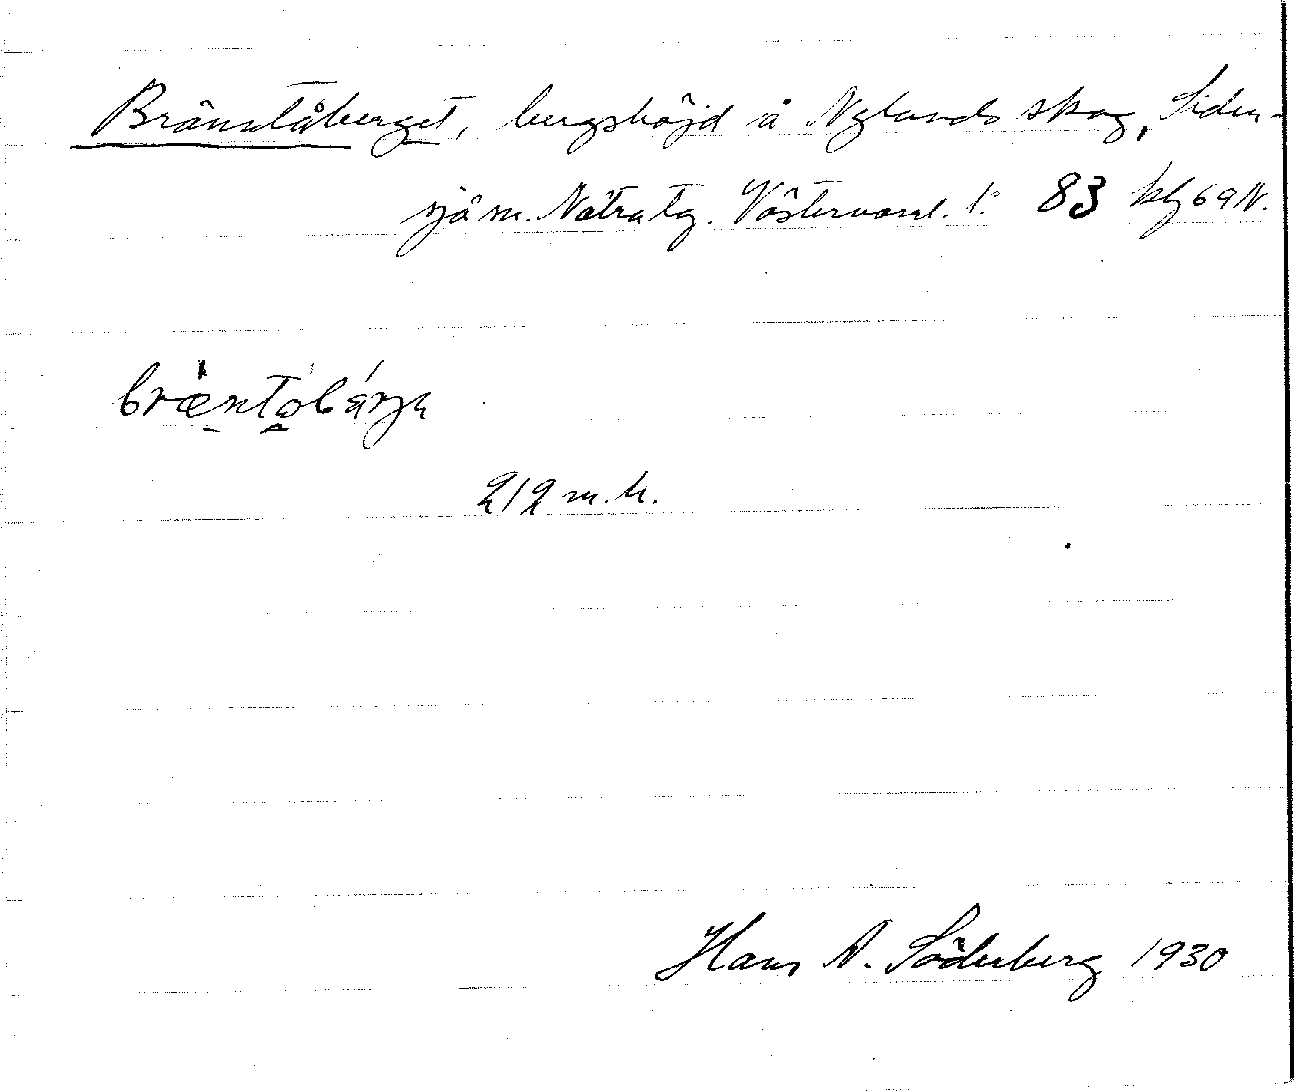 Bränntåberget, bergshöjd å Nylands skog, Siden-
sjö sn. Nätra tg. Västernorrl. l. 83 kbl 69 N.
212 m.h.
Hans A. Söderberg 1930